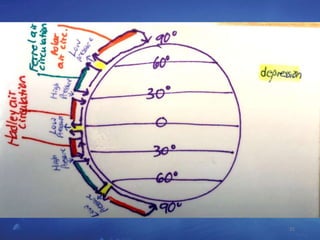 Ferrel air
circulation
Polar
air circ.
Low
Pressure
90°
60°
depression
High
Pressure
30°
Hadley air
circulation
Low
Pressure
0
High
Pressure
30°
60°
Low
Pressure
90°